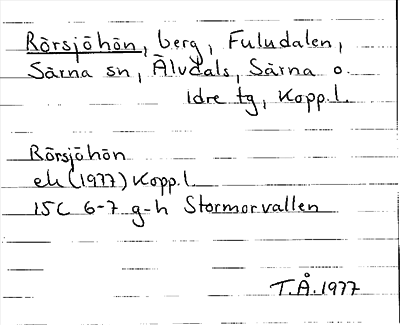 Rörsjöhön, berg, Fuludalen,
Särna sn, Älvdals, Särna o.
Idre tg, Kopp.l.
Rörsjöhön
ek (1977) Kopp.l
15C 6-7 g-h Stormorvallen
T.Å.1977